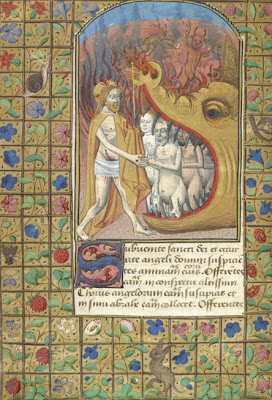 Subuenite sancti dei et occur
rite angeli domini suscipie
as eorum
tes animam eius. Offerentes
as
eam in conspectu altissimi
Chorus angelorum eam suscipiat et
in sinu abrahe eam collocet. Offerentes